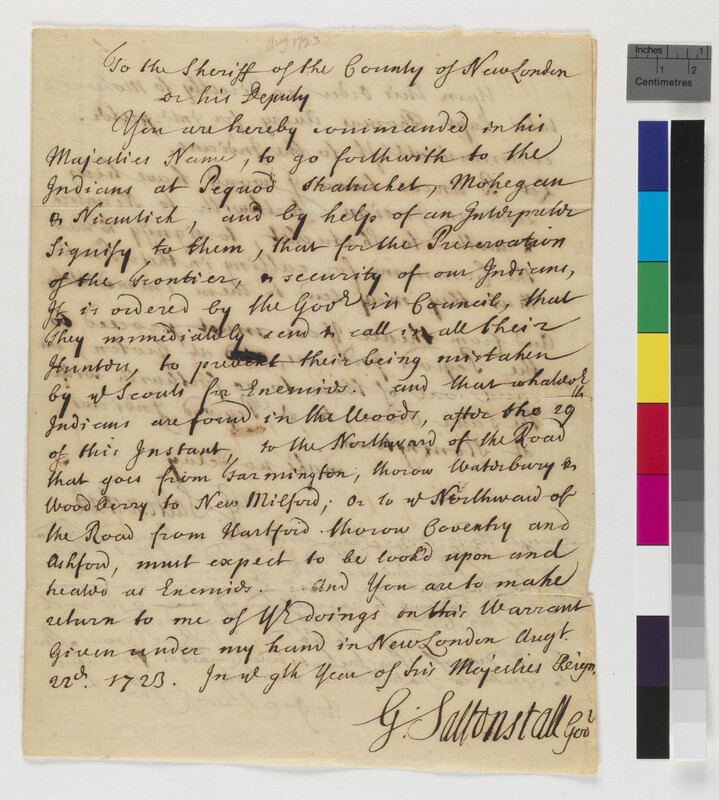 Aug 1723
To the Sheriff of the County of New London
or his Deputy
You are hereby commanded in his
Majesties Name, to go forthwith to the
Indians at Pequod Shatucket, Mohegan
& Niantick, and by help of an Interpreter
Signify to them, that for the Preservation
of the Frontier, & security of our Indians,
It is ordered by the Govr. in Council, that
they immediately send & call in all their
Hunters, to prevent their being mistaken
by ye Scouts for Enemies. and that whatevr
Indians are found in the Woods, after the 29th
of this Instant, to the Northward of the Road
that goes from Farmington, thorow Waterbury &
Woodberry to New Milford; Or to ye Northward of
the Road from Hartford thorow Coventry and
Ashford, must expect to be look'd upon and
treated as Enemies. And You are to make
return to me of Yr doings on this Warrant
Given under my hand in New London Augt.
22d. 1723. In ye 9th Year of his Majesties Reign.
G: Saltonstall Govr
Inches 1
1 2
Centimetres